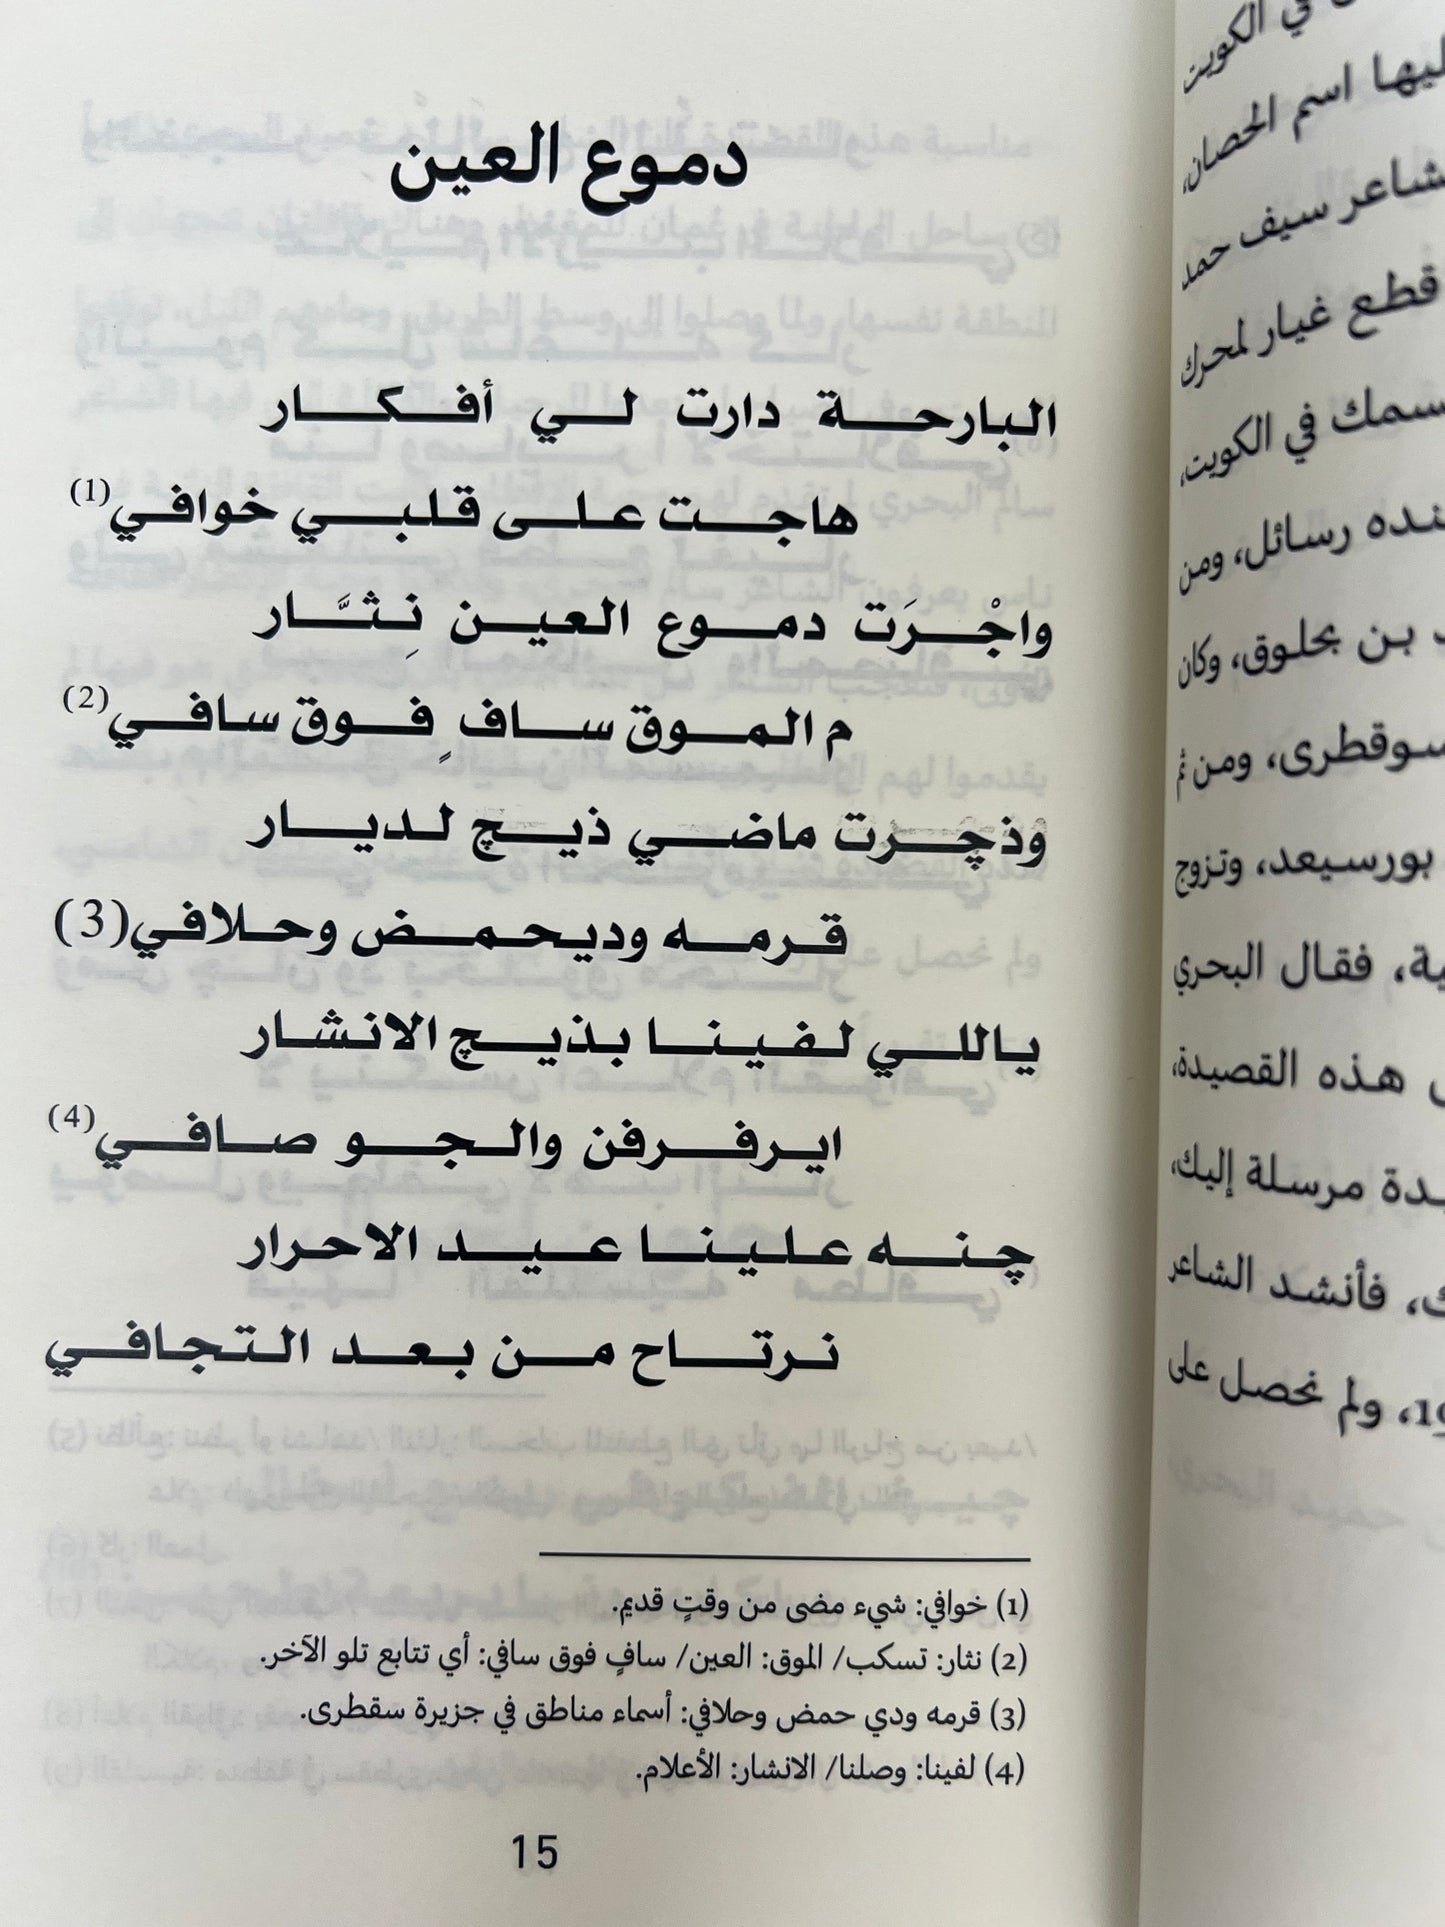 دموع العين
البارحة دارت لي أفكار
هاجت على قلبي خوافي(1)
واجْرَت دموع العين نِثَّار
م الموق سافٍ فوق سافي(2)
وذچرت ماضي ذيچ لديار
قرمه وديحمض وحلافي(3)
ياللي لفينا بذيچ الانشار
ايرفرفن والجو صافي(4)
چنه علينا عيد الاحرار
نرتاح من بعد التجافي
(1) خوافي: شيء مضى من وقتٍ قديم.
(2) نثار: تسكب/ الموق: العين/ سافٍ فوق سافي: أي تتابع تلو الآخر.
(3) قرمه ودي حمض وحلافي: أسماء مناطق في جزيرة سقطرى.
(4) لفينا: وصلنا/ الانشار: الأعلام.
15
في الكويت
اسم الحصان،
سيف حمد
قطع غيار لمحرك
في الكويت،
رسائل، ومن
بن بحلوق، وكان
سوقطرى، ومن ثم
بورسيعد، وتزوج
فقال البحري
هذه القصيدة،
مرسلة إليك،
فأنشد الشاعر
ولم نحصل على